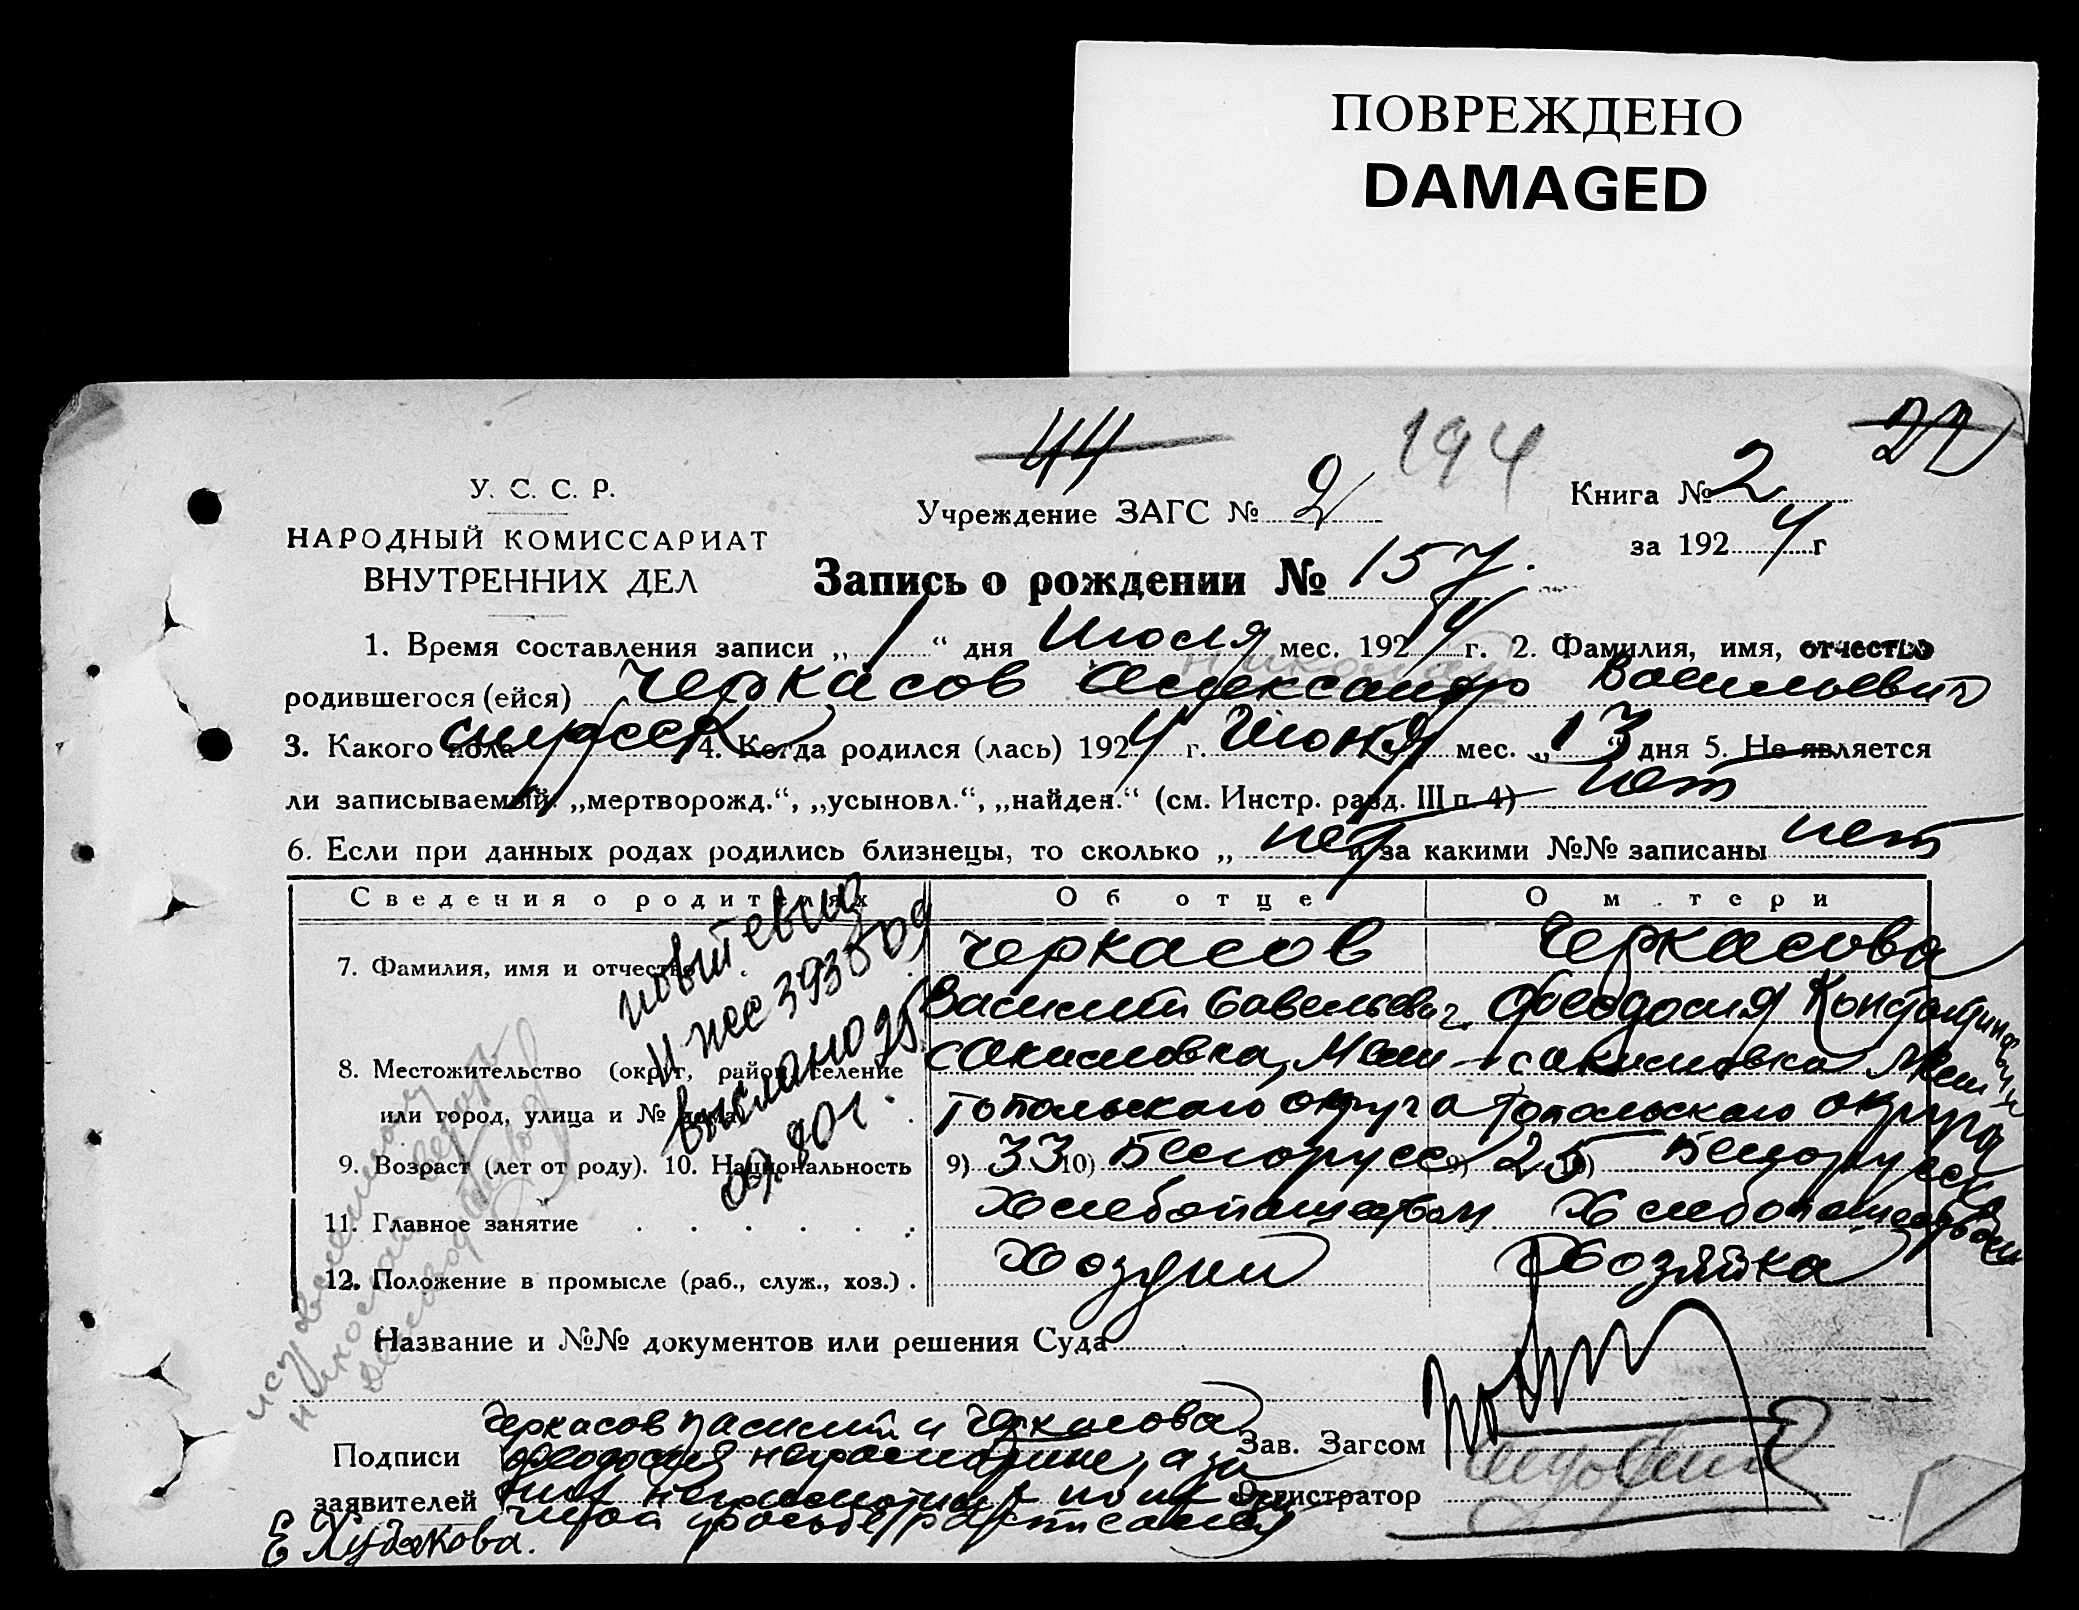 ПОВРЕЖДЕНО
DAMAGED
44 194 22
У. С. С. Р.
НАРОДНЫЙ КОМИССАРИАТ
ВНУТРЕННИХ ДЕЛ
Учреждение ЗАГС № 2
Книга № 2
за 1924 г
Запись о рождении № 157.
1. Время составления записи „1“ дня Июля мес. 1924 г. 2. Фамилия, имя, отчество
родившегося (ейся) Черкасов Александр Васильевич
3. Какого пола 4. Когда родился (лась) 1924 г. Июня мес. „13“ дня 5. Не является
ли записываемый: „мертворожд.“, „усыновл.“, „найден.“ (см. Инстр. разд. III п. 4) нет
6. Если при данных родах родились близнецы, то сколько „нет и за какими №№ записаны нет
Сведения о родителях Об отце О м.тери
7. Фамилия, имя и отчество Черкасов Черкасова
Василий Савельевич Феодосия Константиновна
8. Местожительство (округ, район, селение
или город, улица и № дома топольского округа топольского округа
9. Возраст (лет от роду). 10. Национальность 9) 33 10) Белорусс 9) 25 10) Белорусска
11. Главное занятие Хлебопашеством Хлебопашеством
12. Положение в промысле (раб., служ., хоз.) Хозяин Хозяйка
выслано
Название и №№ документов или решения Суда
Черкасов Василий и Черкасова
Подписи Феодосия неграмотные, а за
заявителей них неграмотных по их
просьбе расписалась
Е Худякова.
Зав. Загсом
Регистратор